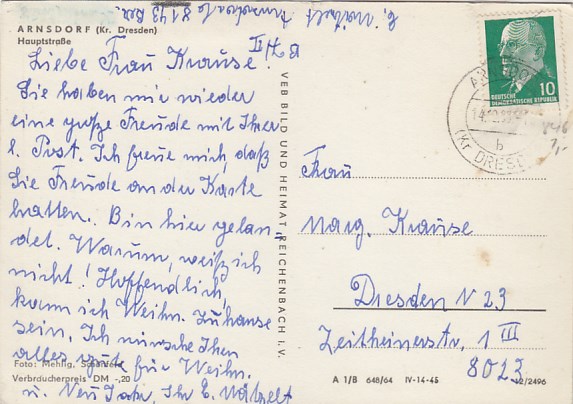 ARNSDORF (Kr. Dresden)
Hauptstraße
Liebe Frau Krause!
Sie haben mir wieder
eine große Freude mit Ihrer
l. Post. Ich freue mich, daß
Sie Freude an der Karte
hatten. Bin hier gelan
det. Warum, weiß ich
nicht! Hoffendlich,
kann ich Weihn. zuhause
sein. Ich wünsche Ihen
alles gute für Weihn.
u. Neu Jahr, Ihr E.
Foto: Mehlig,
Verbraucherpreis DM -,20
E. Arnsdorf 8143
VEB BILD UND HEIMAT REICHENBACH I. V.
10
DEUTSCHE
DEMOKRATISCHE REPUBLIK
b
(Kr. DRESD
Frau
Marg. Krause
Dresden N 23
Zeitheinerstr. 1 III
8023
A 1/B 648/64 IV-14-45
/2496